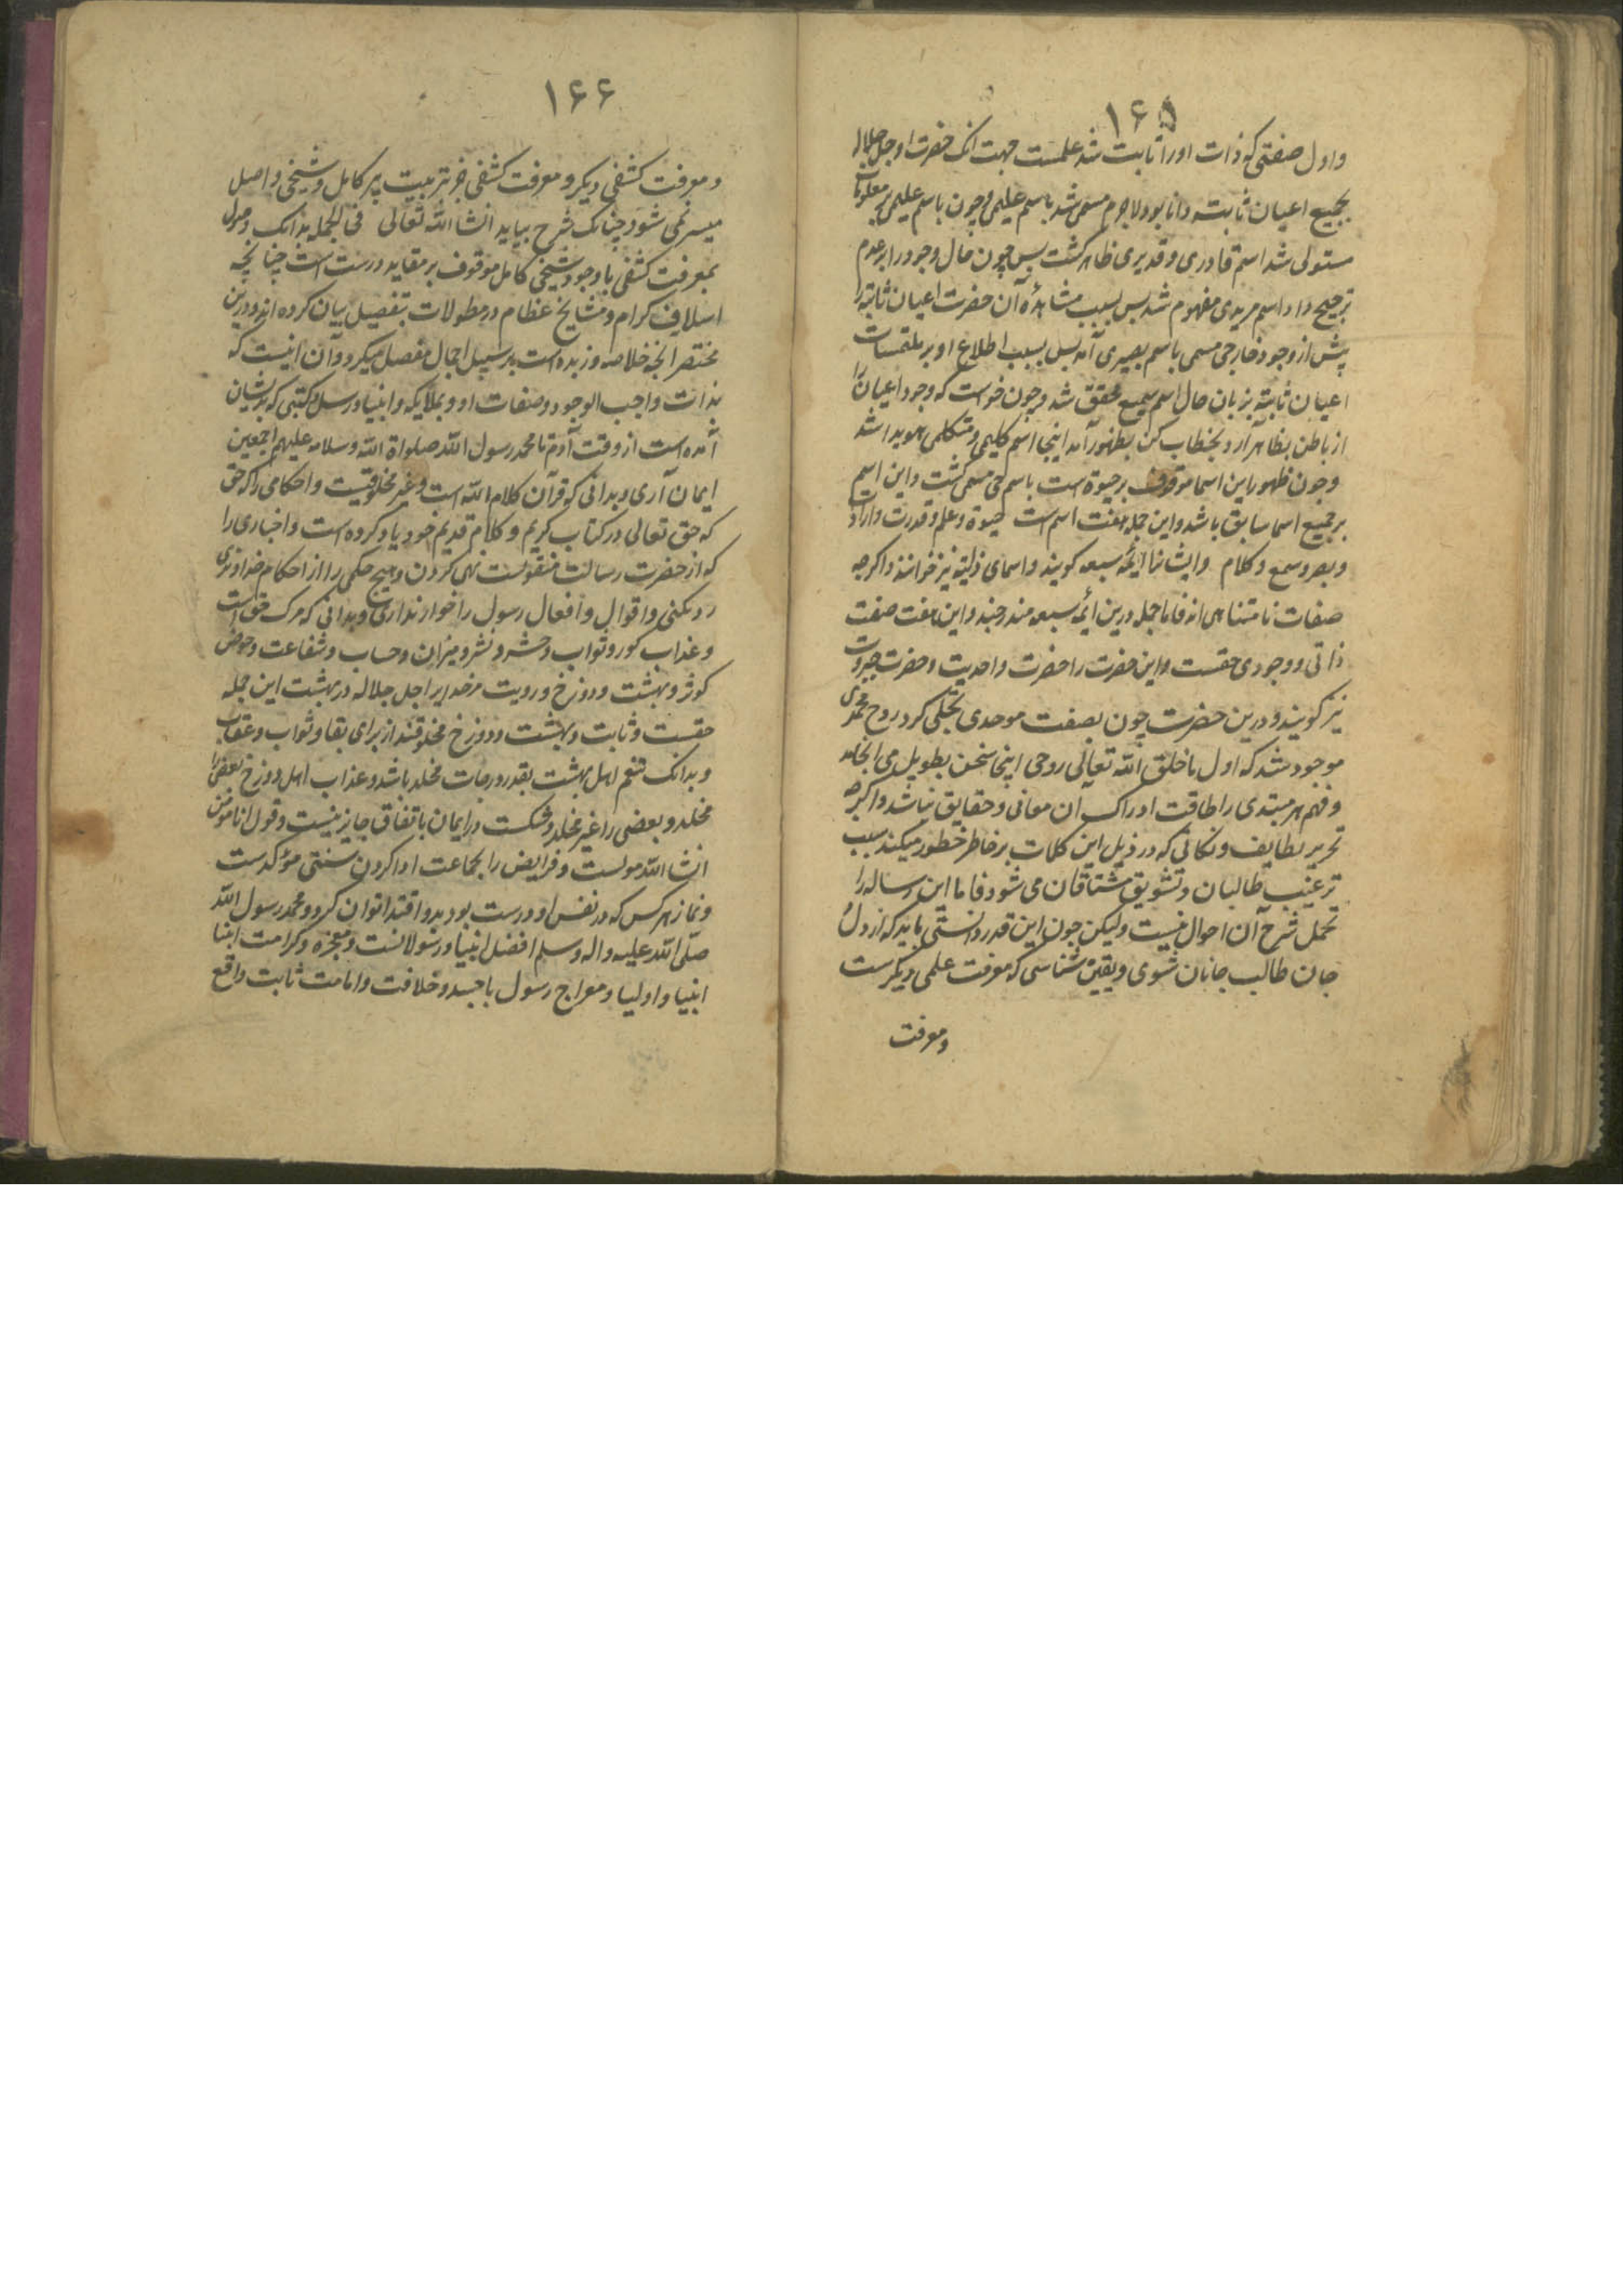 ۱۶۵
واول صفتی که ذات اورا ثابت شد علمست جهت انک حضرت او جل جلاله
بجمیع اعیان ثابته دانا بود لاجرم مسمی شد باسم علیمی و چون باسم علیمی بر معلومات
مستولی شد اسم قادری و قدیری ظاهر کشت بس چون حال وجود را بر عدم
ترجیح داد اسم مریدی مفهوم شد بس بسبب مشاهدهٔ آن حضرت اعیان ثابته را
پیش از وجود خارجی مسمی باسم بصیری آمد بس بسبب اطلاع او بر ملتمسات
اعیان ثابته بزبان حال اسم سمیع محقق شد و چون خواست که وجود اعیان را
از باطن بظاهر آرد بخطاب کن بظهور آمد اینجا اسم کلیمی و متکلمی هویدا شد
وچون ظهور این اسما موقوف بر حیوة است باسم حی مسمی کشت و این اسم
بر جمیع اسما سابق باشد و این جمله هفت اسم است حیوة و علم و قدرت و ارادت
و بصر و سمع و کلام و ایشانرا ایمهٔ سبعه کویند و اسمای ذاتیه نیز خوانند و اکرچه
صفات نامتناهی اند فاما جمله درین ائمه سبعه مندرجند و این هفت صفت
ذاتی و وجودی حقست و این حضرت را حضرت واحدیت و حضرت جبروت
نیز کویند و درین حضرت چون بصفت موحدی تجلی کرد روح محمدی
موجود شد که اول ما خلق الله تعالی روحی اینجا سخن بطویل می انجامد
و فهم هر مبتدی را طاقت ادراک ان معانی و حقایق نباشد و اکرچه
تحریر لطایف و نکاتی که در ذیل این کلمات بر خاطر خطور میکند سبب
ترغیب طالبان و تشویق مشتاقان می شود فاما این رساله را
تحمل شرح آن احوال نیست ولیکن چون این قدر دانستی باید که از دل و
جان طالب جانان شوی و یقین شناسی که معرفت علمی دیکرست
ومعرفت
۱۶۶
ومعرفت کشفی دیکر و معرفت کشفی جز بتربیت پیر کامل و شیخی واصل
میسر نمی شود چنانک شرح بیاید انشا الله تعالی فی الجمله بدانک وصول
بمعرفت کشفی با وجود شیخی کامل موقوف بر عقاید درست است چنانچه
اسلاف کرام و مشایخ عظام در مطولات بتفصیل بیان کرده اند و درین
مختصر انچه خلاصه و زبده است بر سبیل اجمال مفصل میکردد و آن اینست که
بذات واجب الوجود و صفات او و بملایکه و انبیا و رسل و کتبی که بریشان
آمده است از وقت آدم تا محمد رسول الله صلواة الله وسلامه علیهم اجمعین
ایمان آری و بدانی که قرآن کلام الله است و غیر مخلوقیت و احکامی را که حق
که حق تعالی در کتاب کریم و کلام قدیم خود یاد کرده است و اخباری را
که از حضرت رسالت منقولست نهی کردن و هیچ حکمی را از احکام خداوندی
رد نکنی و اقوال و افعال رسول را خوار نداری و بدانی که مرک حق است
و عذاب کور و ثواب و حشر و نشر و میزان و حساب و شفاعت و حوض
کوثر و بهشت و دوزخ و رویت مر خدایرا جل جلاله در بهشت این جمله
حقست و ثابت و بهشت و دوزخ مخلوقند از برای بقا و ثواب و عقاب
و بدانک تنعم اهل بهشت بقدر درجات مخلد باشد و عذاب اهل دوزخ بعضی را
مخلد و بعضی را غیر مخلد و شکست در ایمان باتفاق جایز نیست و قول انا مؤمن
انشا الله مولست و فرایض را بجماعت ادا کردن سنتی مؤکدست
و نماز هر کس که در نفس او درست بود بدو اقتدا توان کرد و محمد رسول الله
صلّی الله علیه واله وسلم افضل انبیا و رسولانست و معجزه و کرامت
انبیا و اولیا و معراج رسول با جسد و خلافت و امامت ثابت واقع